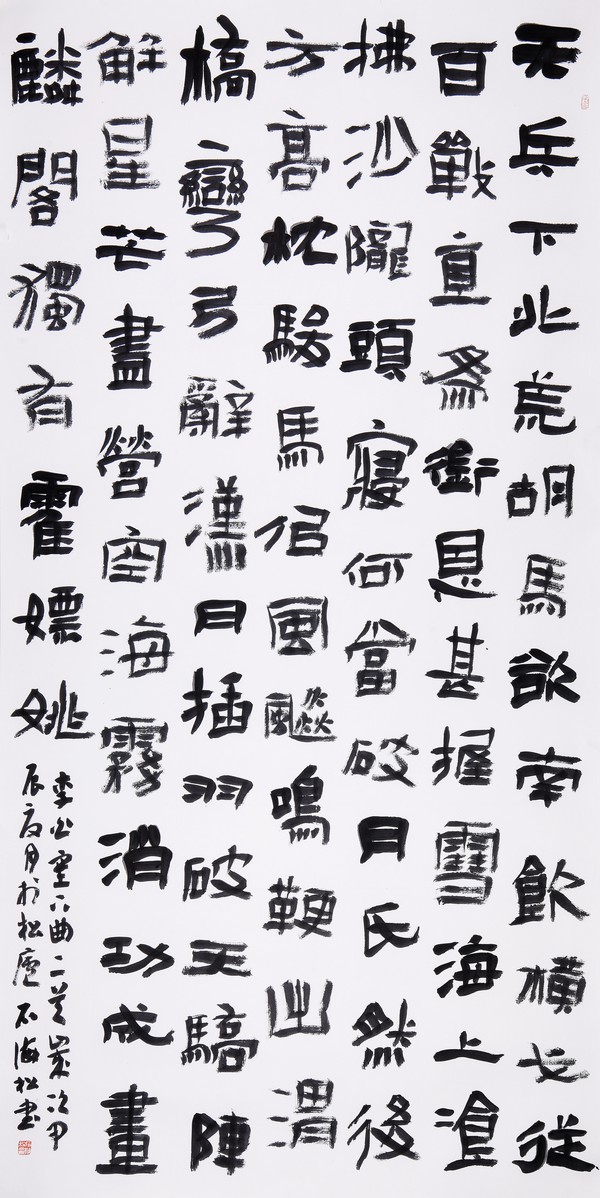 天兵下北荒胡馬欲南飲橫戈從
百戰直為銜恩甚握雪海上飡
拂沙隴頭寢何當破月氏然後
方高枕駿馬似風飈鳴鞭出渭
橋彎弓辭漢月插羽破天驕陣
解星芒盡營空海霧消功成畫
麟閣獨有霍嫖姚
李白塞下曲二首歲次甲
辰夏月於松廬石海松書